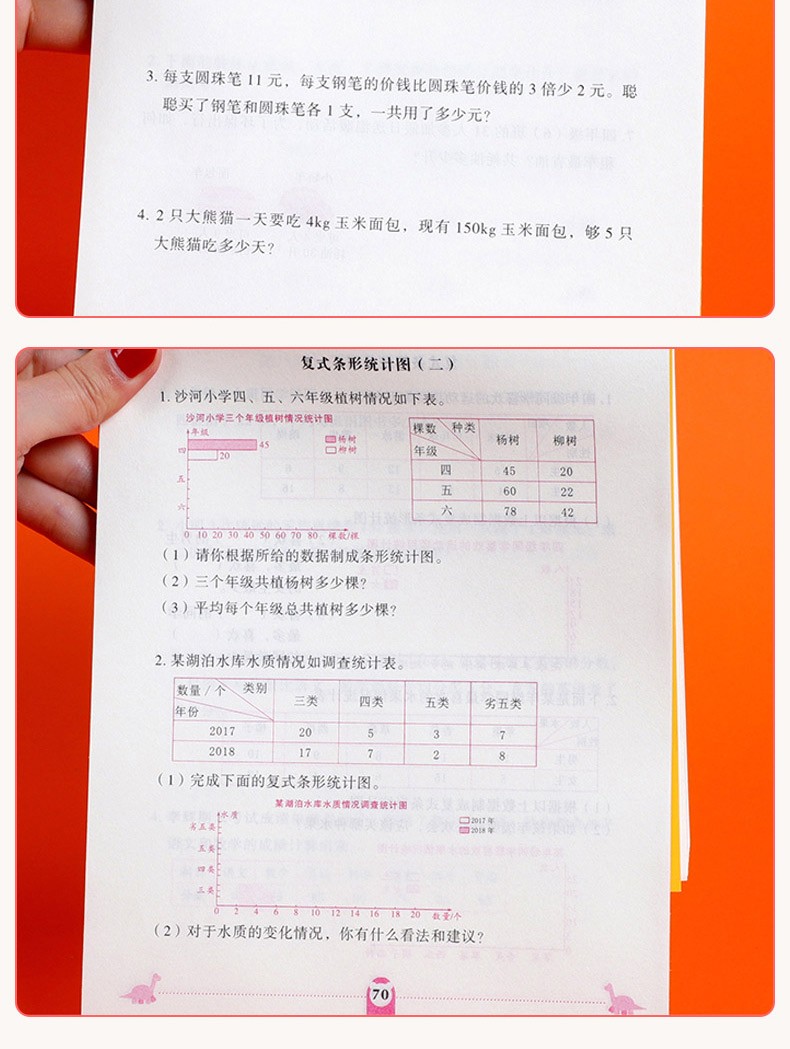 3. 每支圆珠笔 11 元，每支钢笔的价钱比圆珠笔价钱的 3 倍少 2 元。聪
聪买了钢笔和圆珠笔各 1 支，一共用了多少元?
4. 2 只大熊猫一天要吃 4kg 玉米面包，现有 150kg 玉米面包，够 5 只
大熊猫吃多少天?
复式条形统计图（二）
1. 沙河小学四、五、六年级植树情况如下表。
沙河小学三个年级植树情况统计图
年级
四 45
20
五
六
0 10 20 30 40 50 60 70 80 棵数/棵
杨树
柳树
棵数 种类 杨树 柳树
年级
四 45 20
五 60 22
六 78 42
（1）请你根据所给的数据制成条形统计图。
（2）三个年级共植杨树多少棵?
（3）平均每个年级总共植树多少棵?
2. 某湖泊水库水质情况如调查统计表。
数量/个 类别 三类 四类 五类 劣五类
年份
2017 20 5 3 7
2018 17 7 2 8
（1）完成下面的复式条形统计图。
某湖泊水库水质情况调查统计图
水质
劣五类
五类
四类
三类
0 2 4 6 8 10 12 14 16 18 20 数量/个
2017 年
2018 年
（2）对于水质的变化情况，你有什么看法和建议?
70